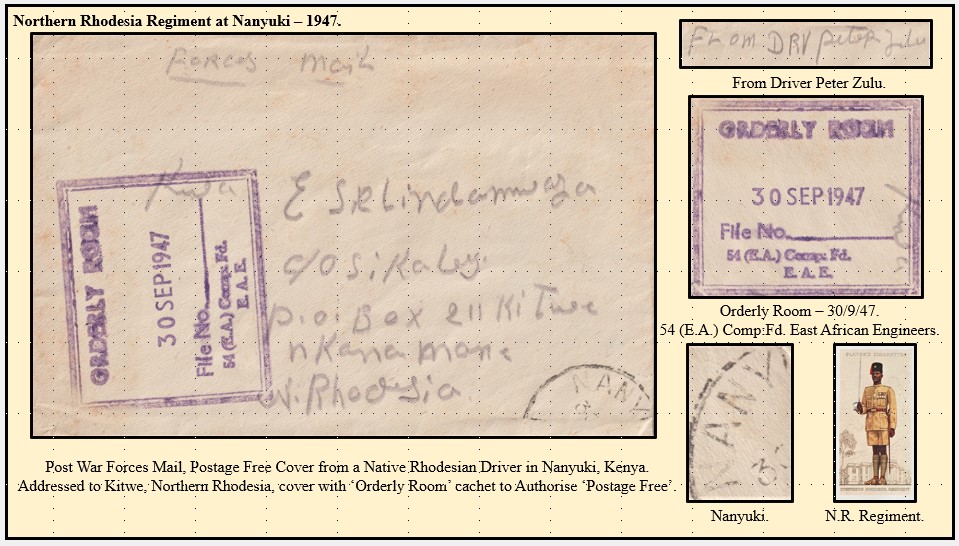 Northern Rhodesia Regiment at Nanyuki – 1947.
Forces Mail
Kwa E Selindamwaza
c/o Sikaley.
P.O. Box 211 Kitwe
nkana mane
N. Rhodesia
ORDERLY ROOM
30 SEP 1947
File No.
54 (E.A.) Comp: Fd.
E. A. E.
NANY
From DRV Peter Zulu
From Driver Peter Zulu.
ORDERLY ROOM
30 SEP 1947
File No.
54 (E.A.) Comp: Fd.
E. A. E.
Orderly Room – 30/9/47.
54 (E.A.) Comp:Fd. East African Engineers.
NANY
3
PLAYER'S CIGARETTES
NORTHERN RHODESIA REGIMENT
Nanyuki.
N.R. Regiment.
Post War Forces Mail, Postage Free Cover from a Native Rhodesian Driver in Nanyuki, Kenya.
Addressed to Kitwe, Northern Rhodesia, cover with ‘Orderly Room’ cachet to Authorise ‘Postage Free’.